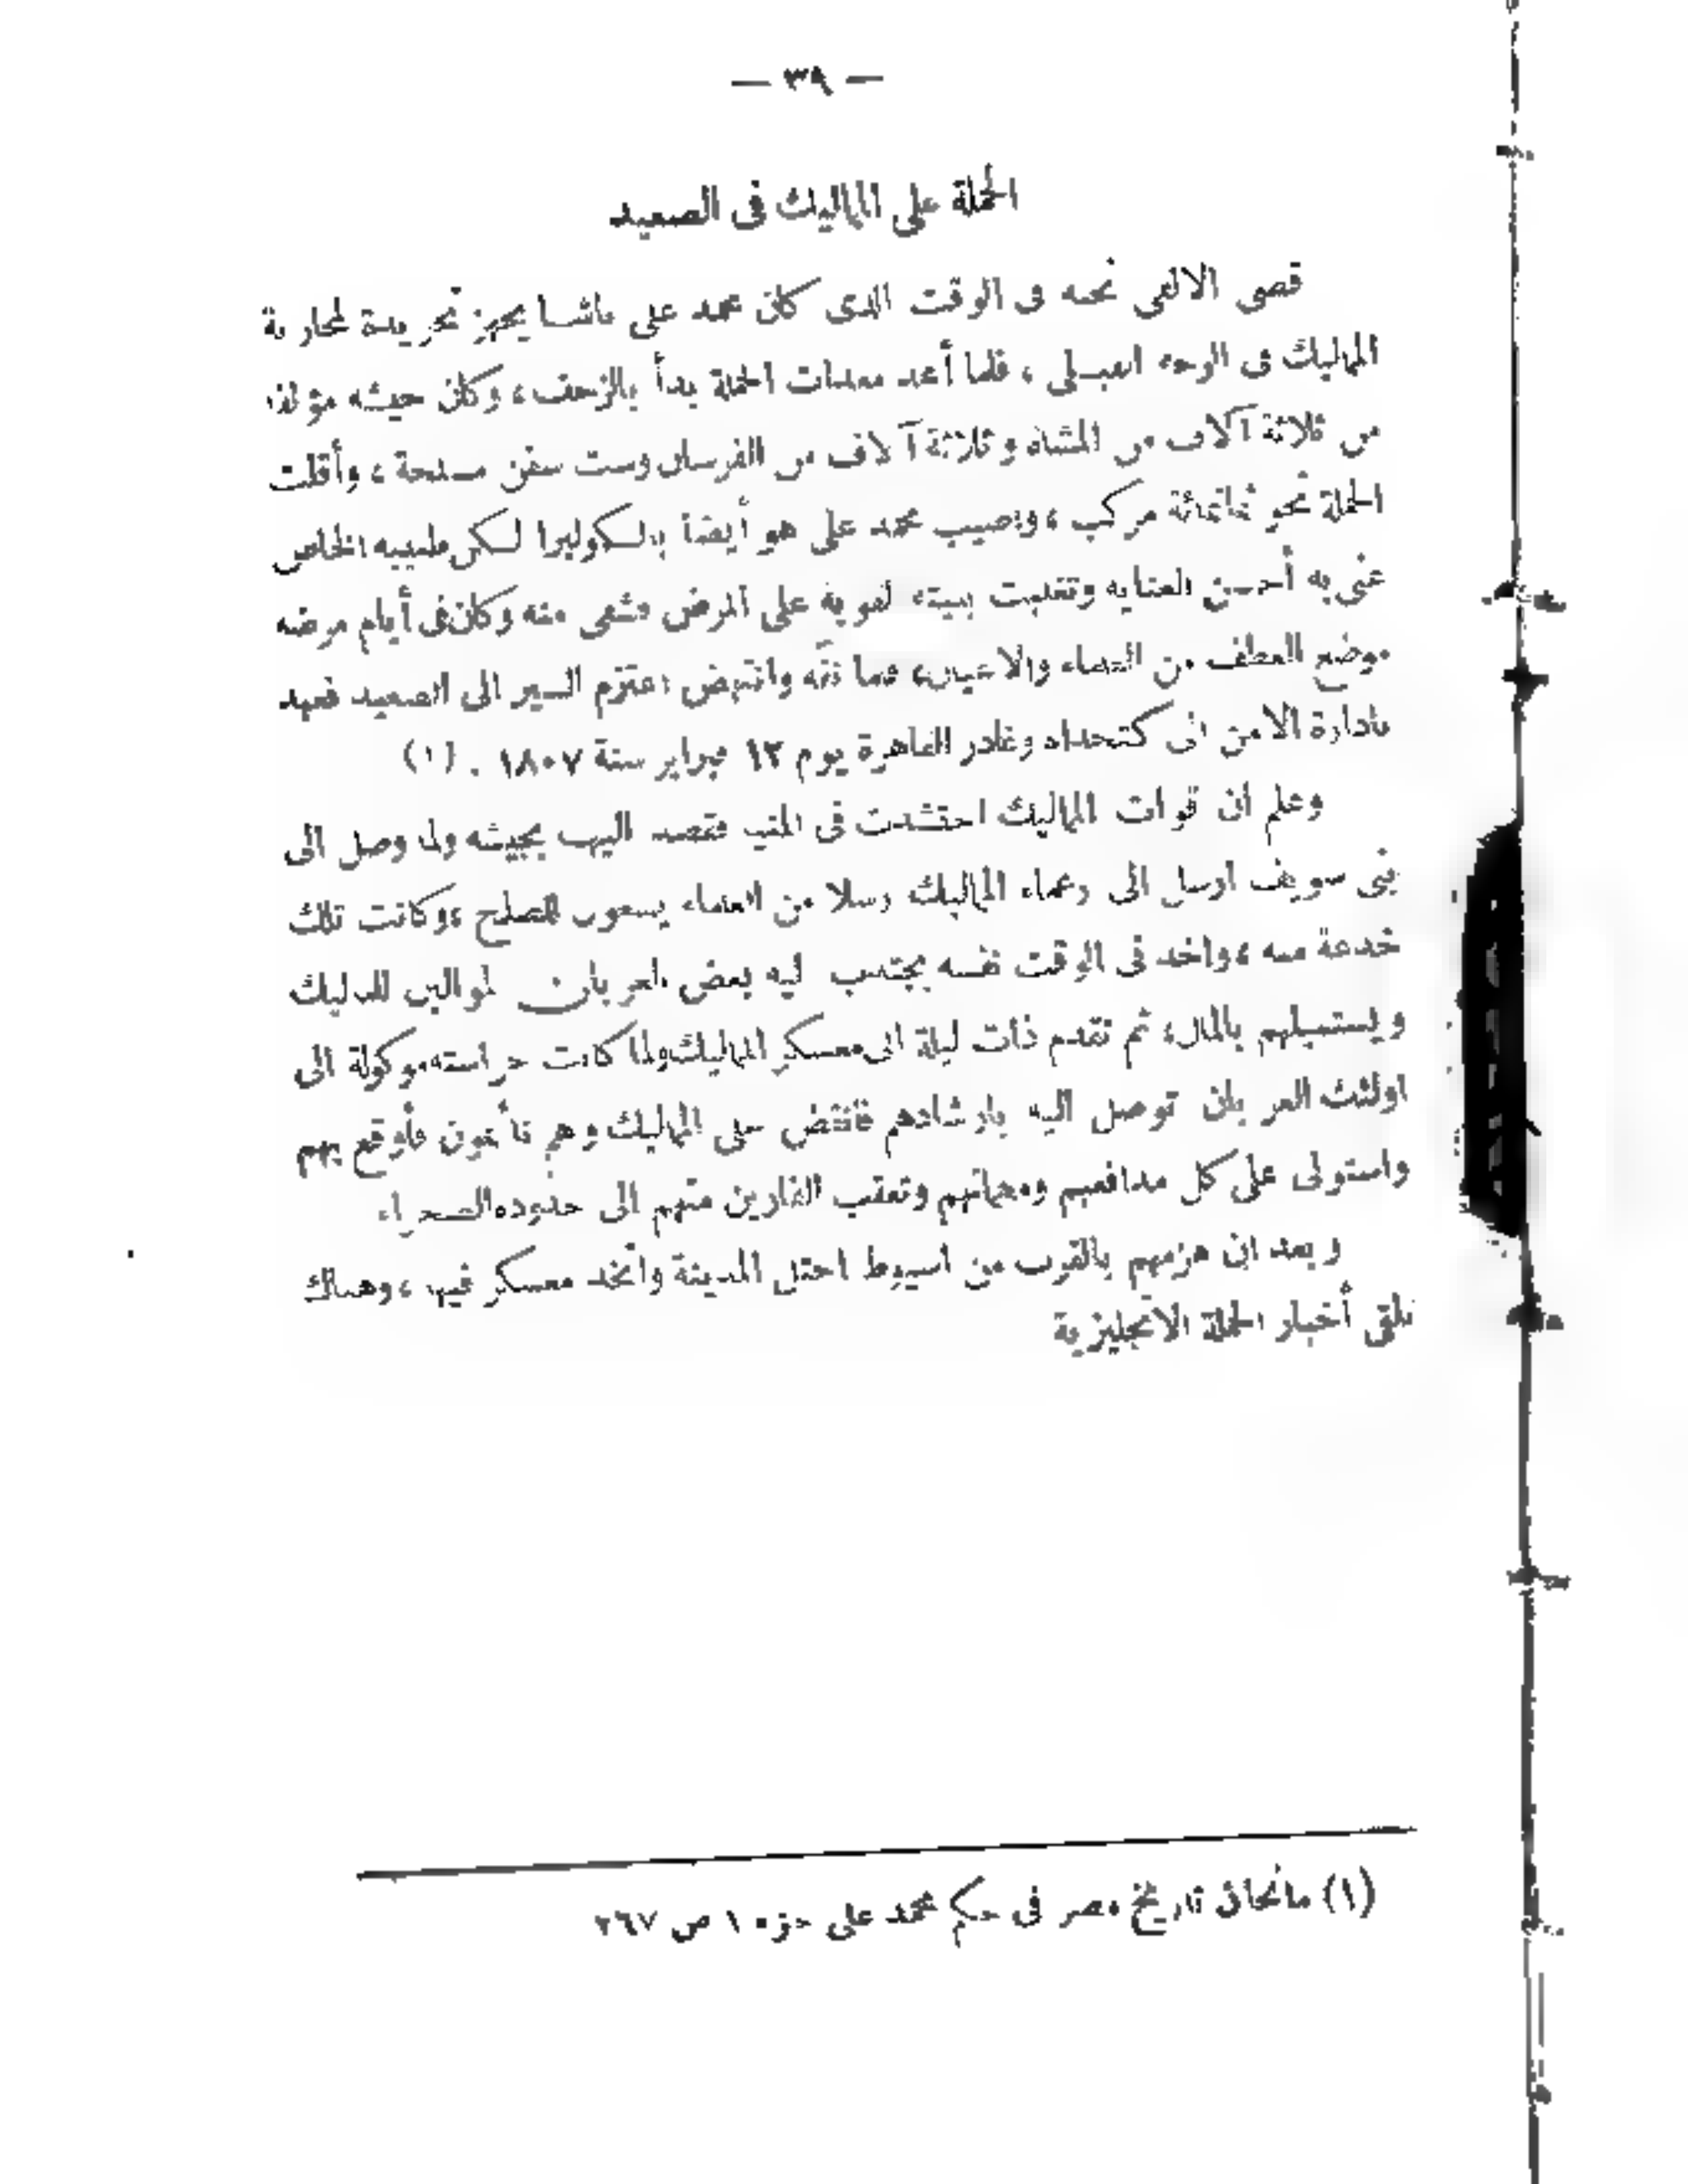 — ٣٩ —
الحملة على المماليك فى الصعيد
قضى الالفى نحبه فى الوقت الذى كان محمد على باشا يجهز تجريدة لمحاربة
المماليك فى الوجه القبلى ، فلما أعد معدات الحملة بدأ بالزحف ، وكان جيشه مؤلفا
من ثلاثة آلاف من المشاة وثلاثة آلاف من الفرسان وست سفن مسلحة ، وأقلت
الحملة نحو ثمانمائة مركب ، واصيب محمد على هو أيضا بالكوليرا لكن طبيبه الخاص
عنى به أحسن العنايه وتغلبت بنيته القوية على المرض فشفى منه وكان فى أيام مرضه
موضع العطف من العلماء والاعيان ، فلما نقه وانتهض اعتزم السير الى الصعيد فعهد
بادارة الامن الى كتخداه وغادر القاهرة يوم ١٢ فبراير سنة ١٨٠٧ . (١)
وعلم ان قوات المماليك احتشدت فى المنيا فقصد اليها بجيشه ولما وصل الى
بنى سويف ارسل الى زعماء المماليك رسلا من العلماء يسعون للصلح ، وكانت تلك
خدعة منه ، واخذ فى الوقت نفسه يجتذب اليه بعض العربان الموالين للمماليك
ويستميلهم بالمال ، ثم تقدم ذات ليلة الى معسكر المماليك ولما كانت حراسته موكولة الى
اولئك العربان توصل اليه بارشادهم فانقض على المماليك وهم نائمون فأوقع بهم
واستولى على كل مدافعهم ومهماتهم وتعقب الفارين منهم الى حدود الصحراء
وبعد ان هزمهم بالقرب من اسيوط احتل المدينة واتخذ معسكره فيها ، وهناك
تلقى أخبار الحملة الانجليزية
(١) مانجان تاريخ مصر فى حكم محمد على جزء ١ ص ٢٦٧